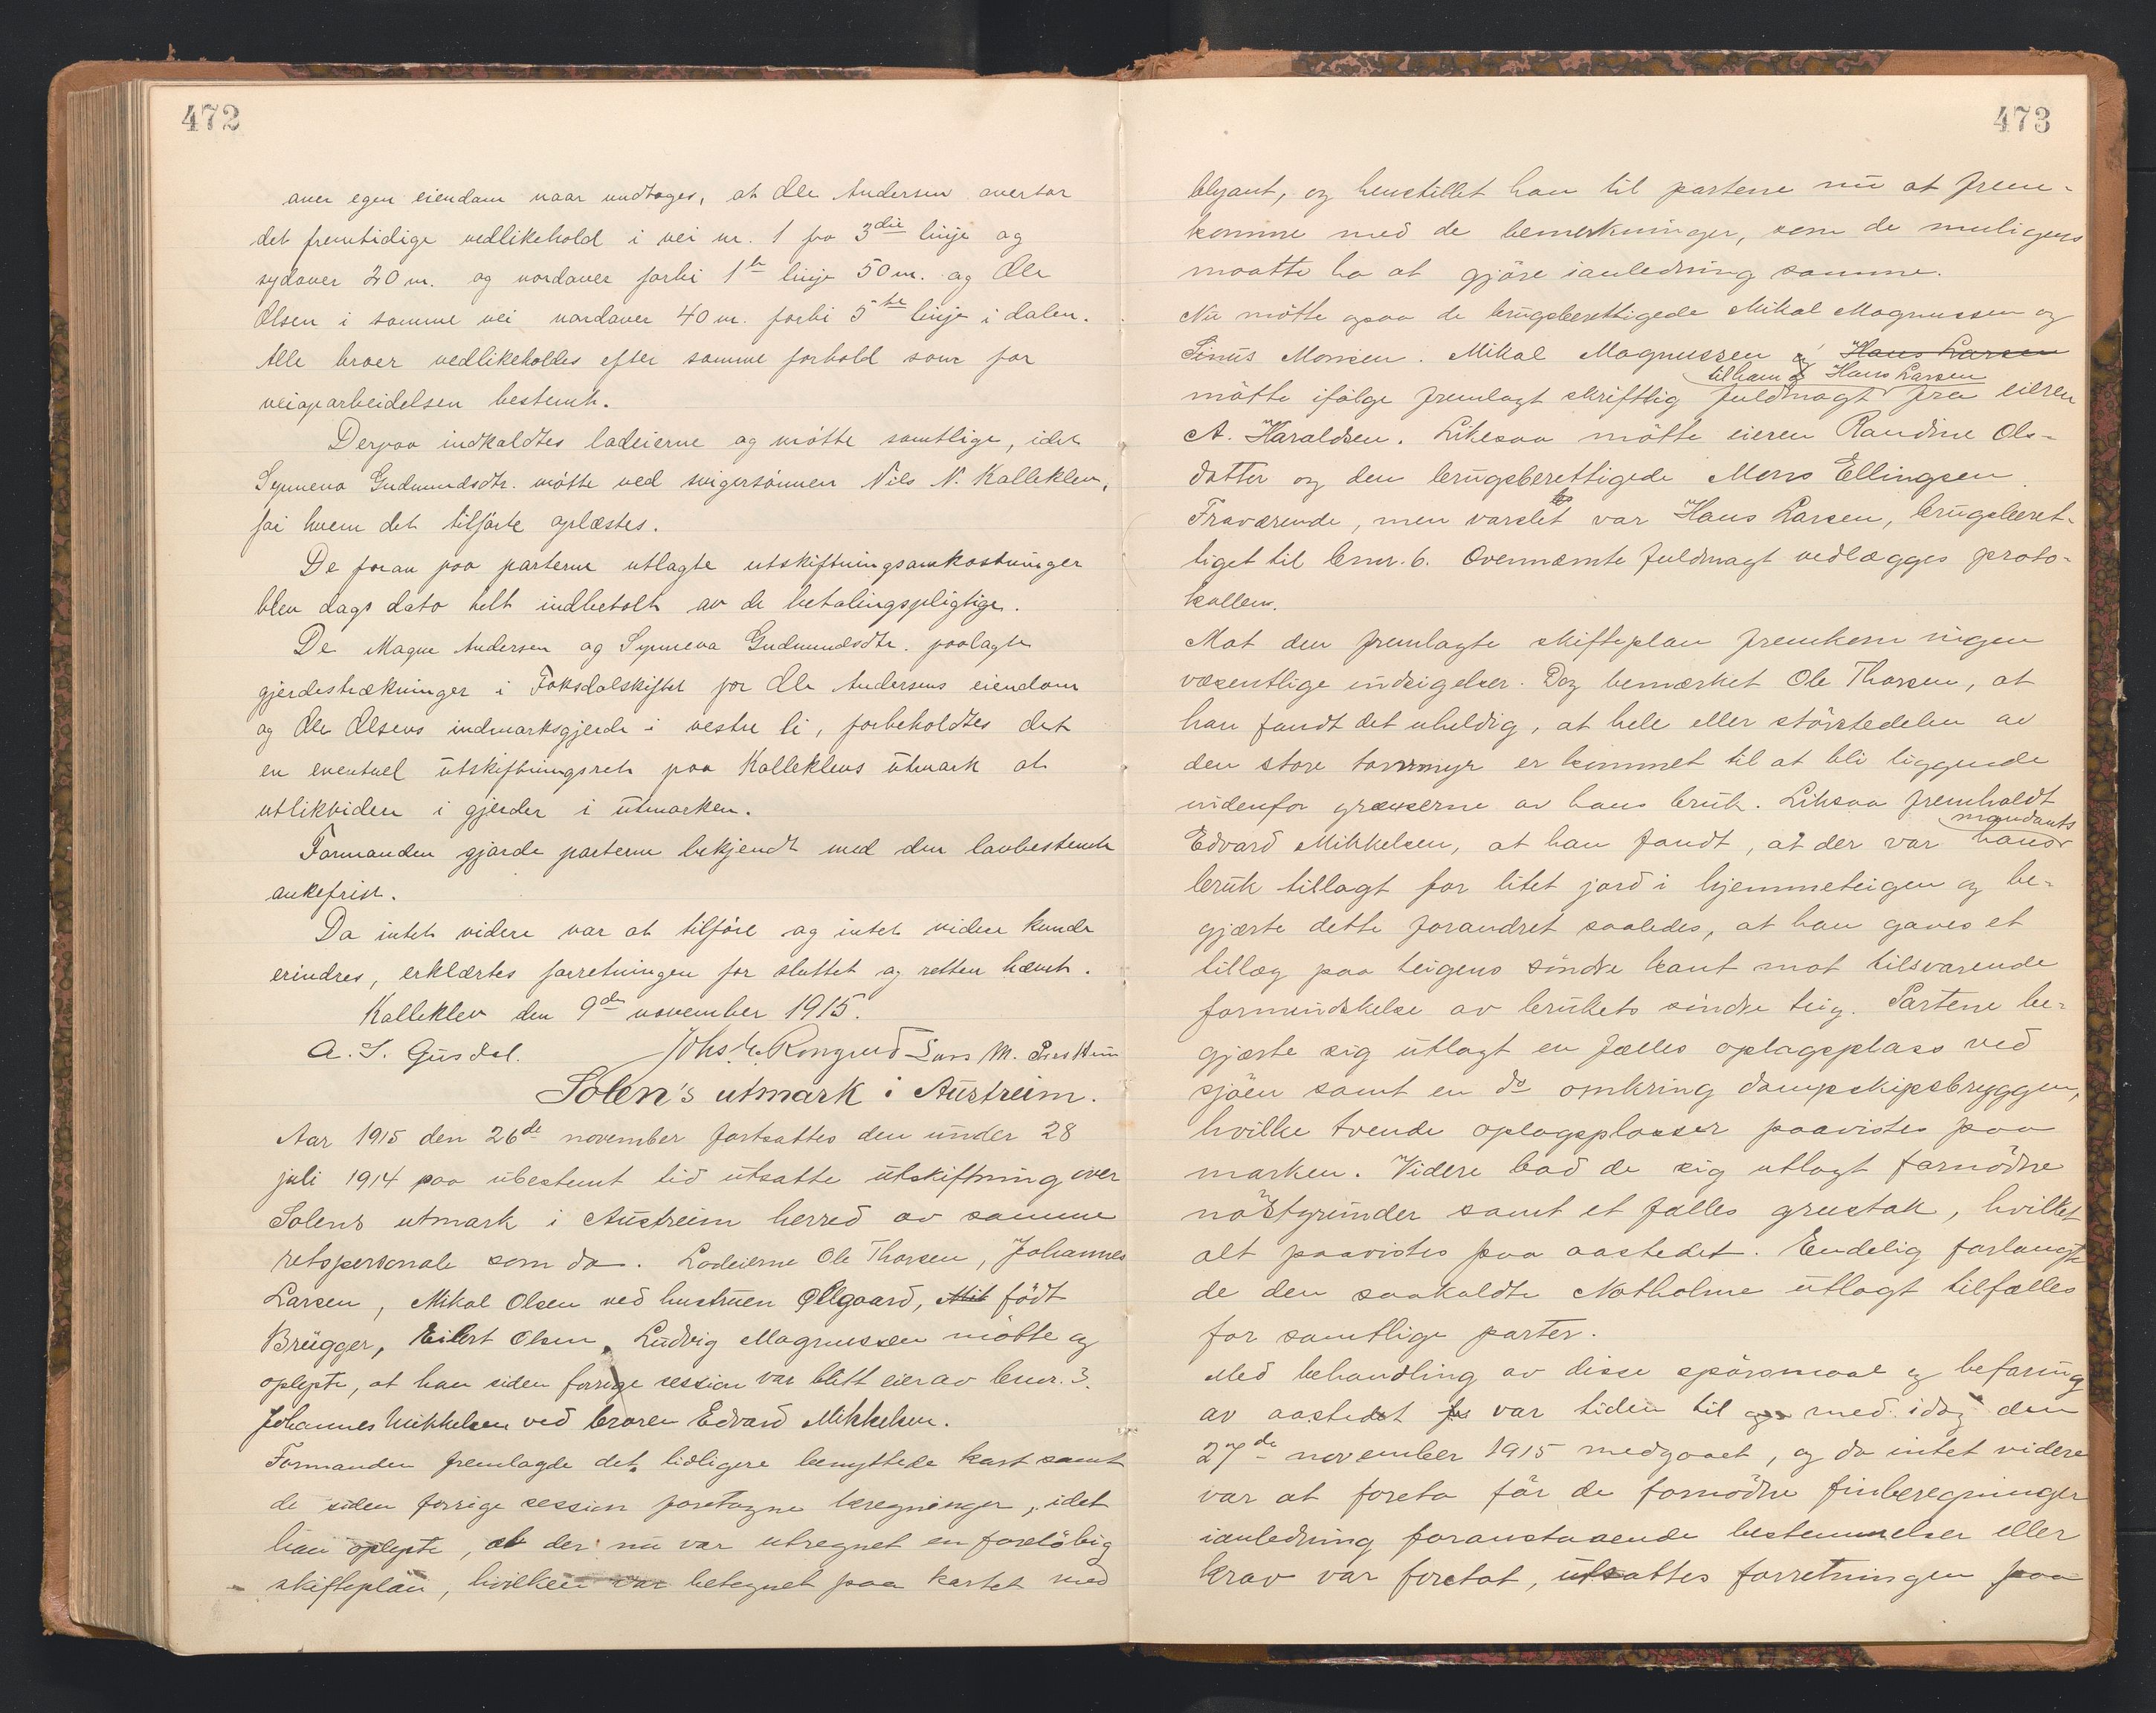 472
over egen eiendom naar undtages, at Ole Andersen overtar
det fremtidige vedlikehold i vei nr. 1 fra 3die linje og
sydover 20 m. og nordover forbi 1te linje 50 m. og Ole
Olsen i samme vei nordover 40 m. forbi 5te linje i dalen.
Alle broer vedlikeholdes efter samme forhold som for
veioparbeidelsen bestemt.
Derpaa indkaldtes lodeierne og møtte samtlige, idet
Synneva Gudmundsdtr. møtte ved svigersønnen Nils N. Kalleklev,
for hvem det tilførte oplæstes.
De foran paa parterne utlagte utskiftningsomkostninger
blev dags dato helt indbetalt av de betalingspligtige.
De Magne Andersen og Synneva Gudmundsdtr. paalagte
gjerdestrækninger i Foksdalskiftet for Ole Andersens eiendom
og Ole Olsens indmarksgjerde i vestre li, forbeholdtes det
en eventuel utskiftningsret paa Kalleklevs utmark at
utlikvidere i gjerder i utmarken.
Formanden gjorde parterne bekjendt med den lovbestemte
ankefrist.
Da intet videre var at tilføre og intet videre kunde
erindres, erklærtes forretningen for sluttet og retten hævet.
Kalleklev den 9de november 1915.
A. S. Gusdal. Johs. E. Rongved Lars M.
Solen's utmark i Austreim.
Aar 1915 den 26de november fortsattes den under 28
juli 1914 paa ubestemt tid utsatte utskiftning over
Solens utmark i Austreim herred av samme
retspersonale som da. Lodeierne Ole Thorsen, Johannes
Larsen, Mikal Olsen ved hustruen Ollgaard, Mik født
Brügger, Eilert Olsen, Ludvig Magnussen møtte og
oplyste, at han siden forrige session var blitt eier av bruk nr. 3.
Johannes Mikkelsen ved broren Edvard Mikkelsen.
Formanden fremlagde det tidligere benyttede kart samt
de siden forrige session foretagne beregninger, idet
han oplyste, at der nu var utregnet en foreløbig
skifteplan, hvilken var betegnet paa kartet med
473
blyant, og henstillet han til parterne nu at frem-
komme med de bemerkninger, som de muligens
maatte ha at gjøre i anledning samme.
Nu møtte ogsaa de brugsberettigede Mikal Magnussen og
Sinus Monsen. Mikal Magnussen og Hans Larsen
til ham & Hans Larsen
møtte ifølge fremlagt skriftlig fuldmagt fra eieren
A. Haraldsen. Likesaa møtte eieren Randine Ols-
datter og den brugsberettigede Mons Ellingsen.
Fraværende, men varslet var Hans Larsen, brugsberet-
tiget til bnr. 6. Ovennæmte fuldmagt vedlægges proto-
kollen.
Mot den fremlagte skifteplan fremkom ingen
væsentlige indsigelser. Dog bemærket Ole Thorsen, at
han fandt det uheldig, at hele eller størstedelen av
den store torvmyr er kommet til at bli liggende
indenfor grænserne av hans bruk. Likesaa fremholdt
mandants
Edvard Mikkelsen, at han fandt, at der var hans
bruk tillagt for litet jord i hjemmeteigen og be-
gjærte dette forandret saaledes, at han gaves et
tillæg paa teigens søndre kant mot tilsvarende
formindskelse av brukets søndre teig. Partene be-
gjærte sig utlagt en fælles oplagsplass ved
sjøen samt en do omkring dampskipsbryggen,
hvilke tvende oplagsplasser paavistes paa
marken. Videre bad de sig utlagt fornødne
nøstgrunder samt et fælles grustak, hvilket
alt paavistes paa aastedet. Endelig forlangte
de den saakaldte Notholme utlagt tilfælles
for samtlige parter.
Med behandling av disse spørsmaal og befaring
av aastedet var tiden til og med idag den
27de november 1915 medgaaet, og da intet videre
var at foreta før de fornødne finberegninger
i anledning foranstaaende bestemmelser eller
krav var foretat, utsattes forretningen paa